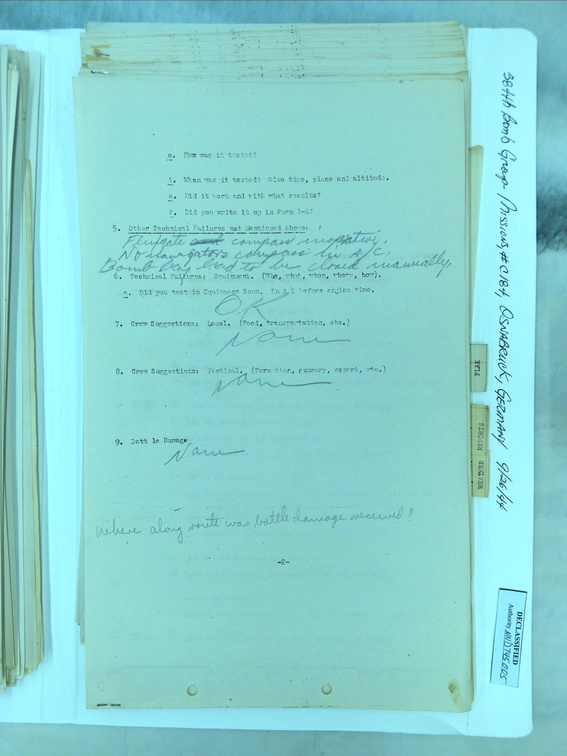 c. How was it tested?
d. When was it tested? Give time, place and altitude.
e. Did it work and with what results?
f. Did you write it up in Form 1-A?
5. Other Technical Failures not Mentioned above:
Fluxgate compass inoperative.
No navigators compass in A/C
Bomb bay had to be closed manually,
6. Technical Failures: Equipment. (Who, what, when, where, how).
a. Did you test in Equipment Room. In A/C before engine time.
OK
7. Crew Suggestions: Local. (Food, transportation, etc.)
None
8. Crew Suggestions: Tactical. (Formation, gunnery, escort, etc.)
None
9. Battle Damage
None
Where along route was battle damage received?
-2-
384th Bomb Group - Missions # C184, OSNABRUCK, GERMANY 9/26/44
FLAK
WEATHER REPORTS
DECLASSIFIED
Authority NND 745005